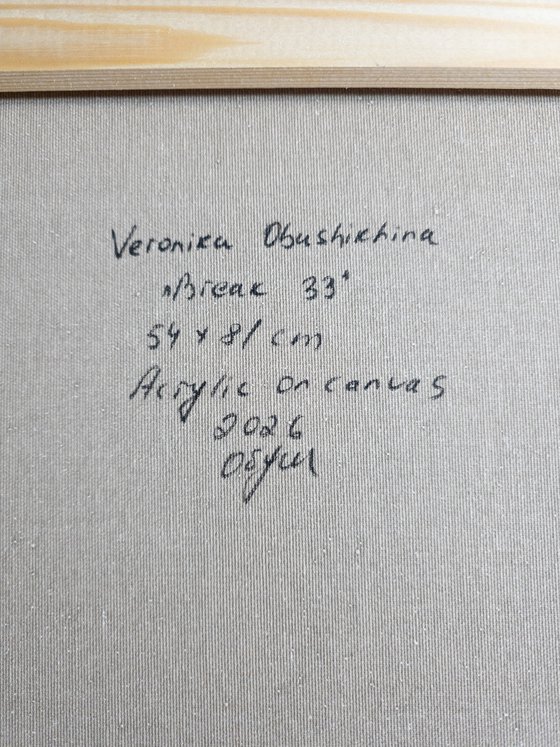 Veronika Obushikhina
"Break 33"
54 x 81 cm
Acrylic on canvas
2026
Обуш